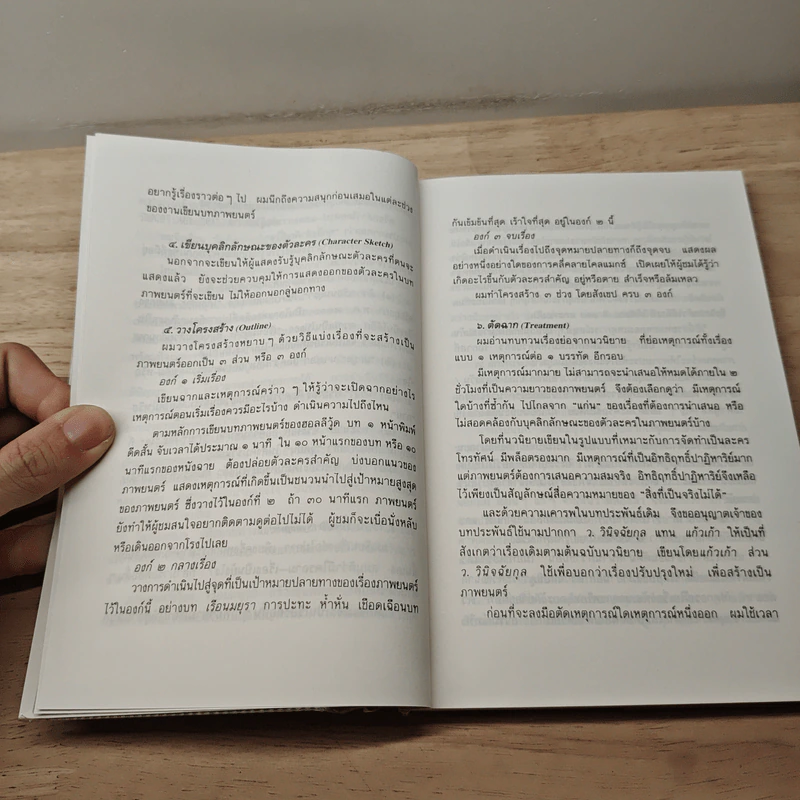 อยากรู้เรื่องราวต่อ ๆ ไป ผมนึกถึงความสนุกก่อนเสมอในแต่ละช่วง
ของงานเขียนบทภาพยนตร์
๔. เขียนบุคลิกลักษณะของตัวละคร (Character Sketch)
นอกจากจะเขียนให้ผู้แสดงรับรู้บุคลิกลักษณะตัวละครที่ตนจะ
แสดงแล้ว ยังจะช่วยควบคุมให้การแสดงออกของตัวละครในบท
ภาพยนตร์ที่จะเขียน ไม่ให้ออกนอกลู่นอกทาง
๕. วางโครงสร้าง (Outline)
ผมวางโครงสร้างหยาบ ๆ ด้วยวิธีแบ่งเรื่องที่จะสร้างเป็น
ภาพยนตร์ออกเป็น ๓ ส่วน หรือ ๓ องก์
องก์ ๑ เริ่มเรื่อง
เขียนฉากและเหตุการณ์คร่าว ๆ ให้รู้ว่าจะเปิดฉากอย่างไร
เหตุการณ์ตอนเริ่มเรื่องควรมีอะไรบ้าง ดำเนินความไปถึงไหน
ตามหลักการเขียนบทภาพยนตร์ของฮอลลีวู้ด บท ๑ หน้าพิมพ์
ดีดสั้น จับเวลาได้ประมาณ ๑ นาที ใน ๑๐ หน้าแรกของบท หรือ ๑๐
นาทีแรกของหนังฉาย ต้องปล่อยตัวละครสำคัญ บ่งบอกแนวของ
ภาพยนตร์ แสดงเหตุการณ์ที่เกิดขึ้นเป็นชนวนนำไปสู่เป้าหมายสูงสุด
ของภาพยนตร์ ซึ่งวางไว้ในองก์ที่ ๒ ถ้า ๓๐ นาทีแรก ภาพยนตร์
ยังทำให้ผู้ชมสนใจอยากติดตามดูต่อไปไม่ได้ ผู้ชมก็จะเบื่อนั่งหลับ
หรือเดินออกจากโรงไปเลย
องก์ ๒ กลางเรื่อง
วางการดำเนินไปสู่จุดที่เป็นเป้าหมายปลายทางของเรื่องภาพยนตร์
ไว้ในองก์นี้ อย่างบท เรือนมยุรา การปะทะ ห้ำหั่น เชือดเฉือนบท
กันเข้มข้นที่สุด เร้าใจที่สุด อยู่ในองก์ ๒ นี้
องก์ ๓ จบเรื่อง
เมื่อดำเนินเรื่องไปถึงจุดหมายปลายทางก็ถึงจุดจบ แสดงผล
อย่างหนึ่งอย่างใดของการคลี่คลายไคลแมกซ์ เปิดเผยให้ผู้ชมได้รู้ว่า
เกิดอะไรขึ้นกับตัวละครสำคัญ อยู่หรือตาย สำเร็จหรือล้มเหลว
ผมทำโครงสร้าง ๓ ช่วง โดยสังเขป ครบ ๓ องก์
๖. ตัดฉาก (Treatment)
ผมอ่านทบทวนเรื่องย่อจากนวนิยาย ที่ย่อเหตุการณ์ทั้งเรื่อง
แบบ ๑ เหตุการณ์ต่อ ๑ บรรทัด อีกรอบ
มีเหตุการณ์มากมาย ไม่สามารถจะนำเสนอให้หมดได้ภายใน ๒
ชั่วโมงที่เป็นความยาวของภาพยนตร์ จึงต้องเลือกดูว่า มีเหตุการณ์
ใดบ้างที่ซ้ำกัน ไปไกลจาก "แก่น" ของเรื่องที่ต้องการนำเสนอ หรือ
ไม่สอดคล้องกับบุคลิกลักษณะของตัวละครในภาพยนตร์บ้าง
โดยที่นวนิยายเขียนในรูปแบบที่เหมาะกับการจัดทำเป็นละคร
โทรทัศน์ มีพล็อตรองมาก มีเหตุการณ์ที่เป็นอิทธิฤทธิ์ปาฏิหาริย์มาก
แต่ภาพยนตร์ต้องการเสนอความสมจริง อิทธิฤทธิ์ปาฏิหาริย์จึงเหลือ
ไว้เพียงเป็นสัญลักษณ์สื่อความหมายของ "สิ่งที่เป็นจริงไม่ได้"
และด้วยความเคารพในบทประพันธ์เดิม จึงขออนุญาตเจ้าของ
บทประพันธ์ใช้นามปากกา ว. วินิจฉัยกุล แทน แก้วเก้า ให้เป็นที่
สังเกตว่าเรื่องเดิมตามต้นฉบับนวนิยาย เขียนโดยแก้วเก้า ส่วน
ว. วินิจฉัยกุล ใช้เพื่อบอกว่าเรื่องปรับปรุงใหม่ เพื่อสร้างเป็น
ภาพยนตร์
ก่อนที่จะลงมือตัดเหตุการณ์ใดเหตุการณ์หนึ่งออก ผมใช้เวลา